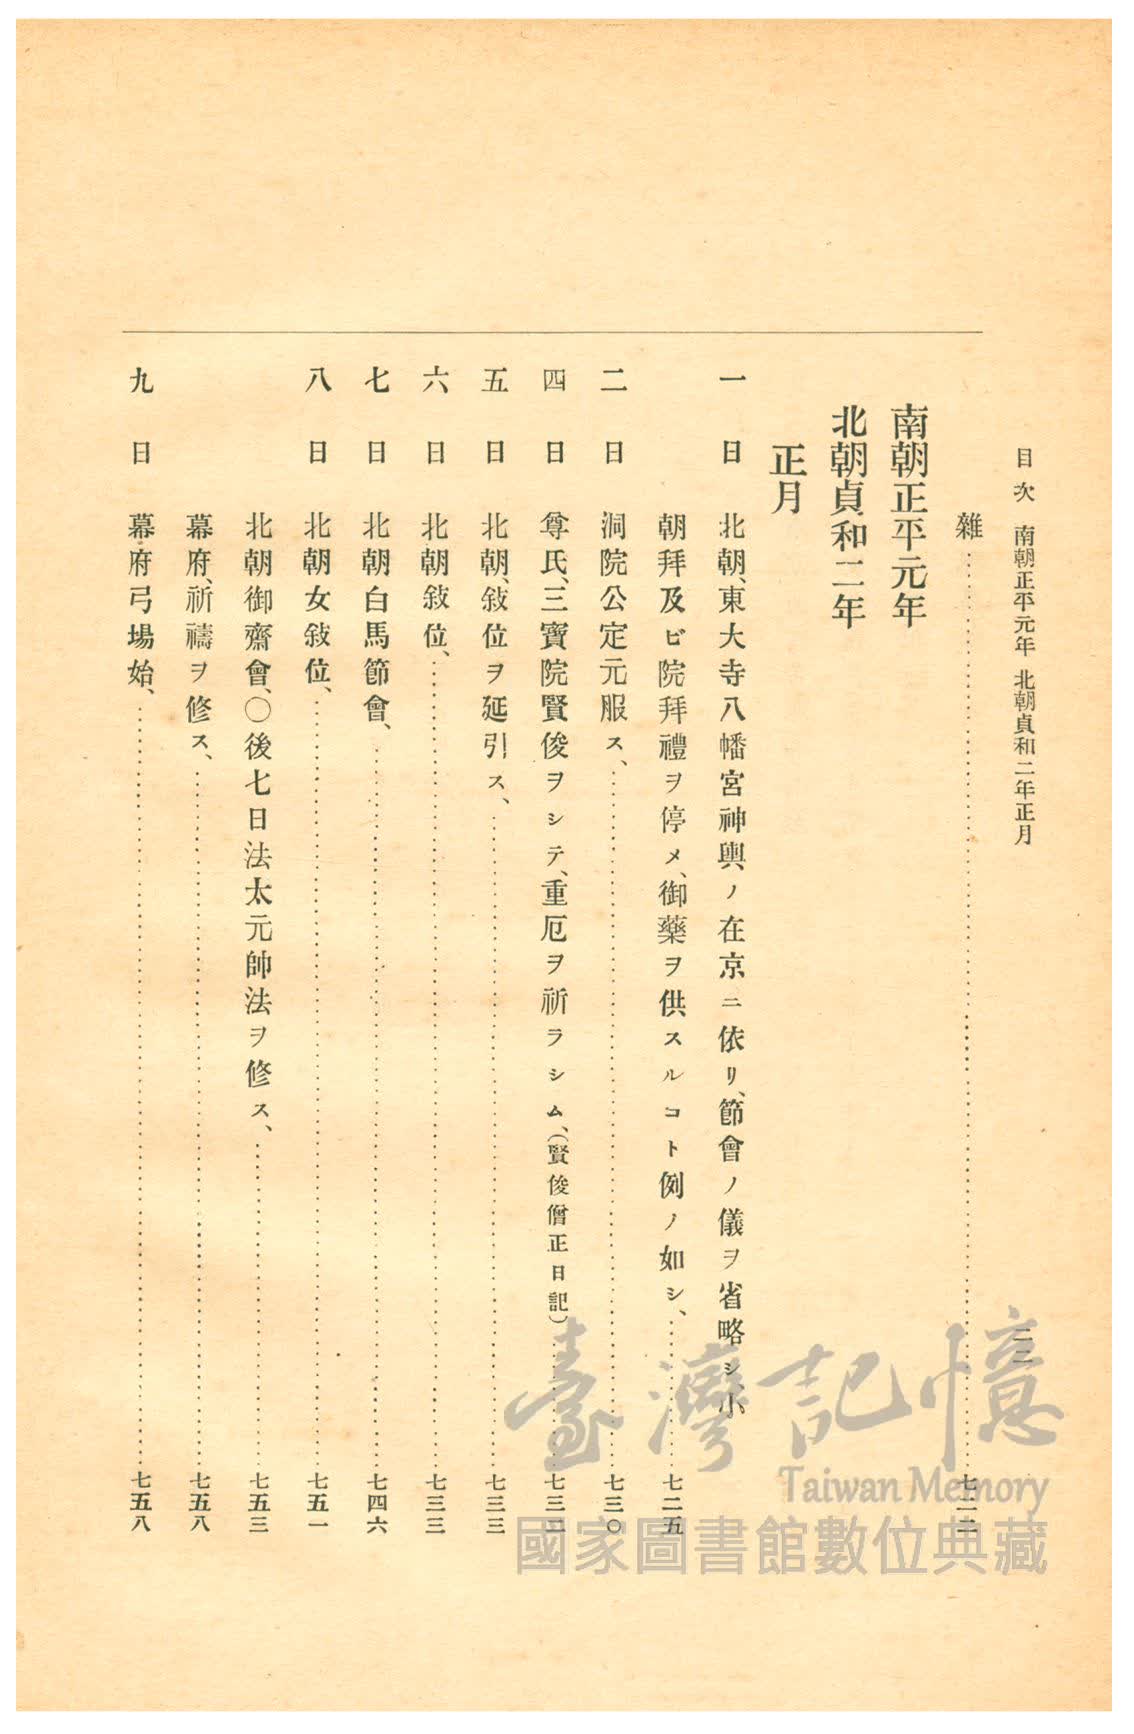 目次　南朝正平元年　北朝貞和二年正月
雜……七二二
南朝正平元年
北朝貞和二年
正月
一日　北朝、東大寺八幡宮神輿ノ在京ニ依リ、節會ノ儀ヲ省略シ、小
朝拜及ビ院拜禮ヲ停メ、御藥ヲ供スルコト例ノ如シ、……七二五
二日　洞院公定元服ス、……七三〇
四日　尊氏、三寶院賢俊ヲシテ、重厄ヲ祈ラシム、（賢俊僧正日記）……七三二
五日　北朝、敍位ヲ延引ス、……七三三
六日　北朝敍位、……七三三
七日　北朝白馬節會、……七四六
八日　北朝女敍位、……七五一
北朝御齋會、〇後七日法太元帥法ヲ修ス、……七五三
幕府、祈禱ヲ修ス、……七五八
九日　幕府弓場始、……七五八
臺灣記憶
Taiwan Memory
國家圖書館數位典藏